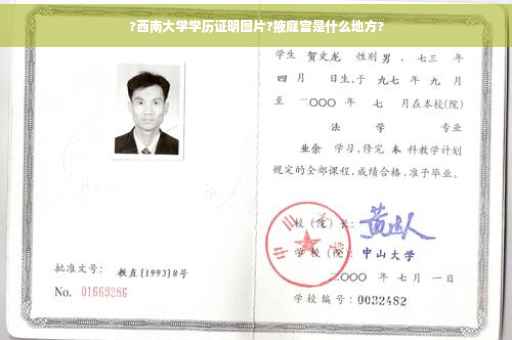 ?西南大学学历证明图片?掖庭宫是什么地方?
学生 贺文龙 性别 男、七三 年
四 月 日生,于 九七 年 九 月
至 二OOO 年 七 月在本校(院)
法 学 专业
业余 学习,修完 本 科教学计划
规定的全部课程,成绩合格,准予毕业。
校(院)长:
学校(院): 中山大学
二OOO 年 七 月 一 日
学校编号: 0032482
批准文号: 教直[1993]8号
No. 01663286